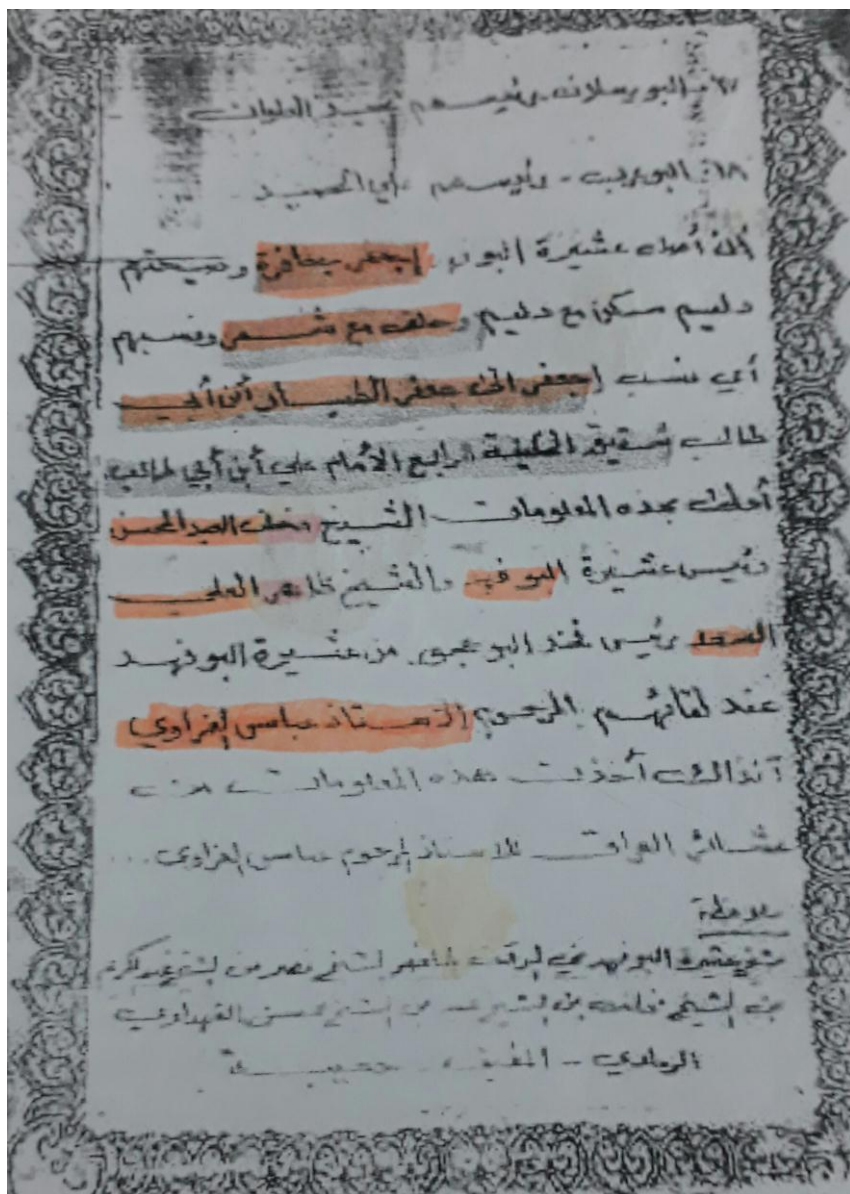 البو رسلان رئيسهم عبيد العليان
١٨- البو غريب - رئيسهم علي الحميد
أن أصل عشيرة البو فهد إجعفر بجافرة
دليم سكن مع دليم وحلف مع شمر ونسبهم
أي نسب إجعفر الى جعفر الطيار أبن أبي
طالب شقيق الخليفة الرابع الأمام علي أبن أبي طالب
أعلمت بهذه المعلومات الشيخ مخلف العبد المحسن
رئيس عشيرة البو فهد والشيخ ظاهر العلي
رئيس فخذ البو من عشيرة البو فهد
عند لقائهم المرحوم الاستاذ عباس العزاوي
آنذاك أخذت هذه المعلومات من
عشائر العراق للاستاذ المرحوم عباس العزاوي...
ملاحظة
شيخ عشيرة البو فهد في الوقت الحاضر الشيخ نصر بن الشيخ عبد الكريم
بن الشيخ مخلف بن الشيخ بن الشيخ محسن الفهداوي
الرمادي - المضيف - حصيبة